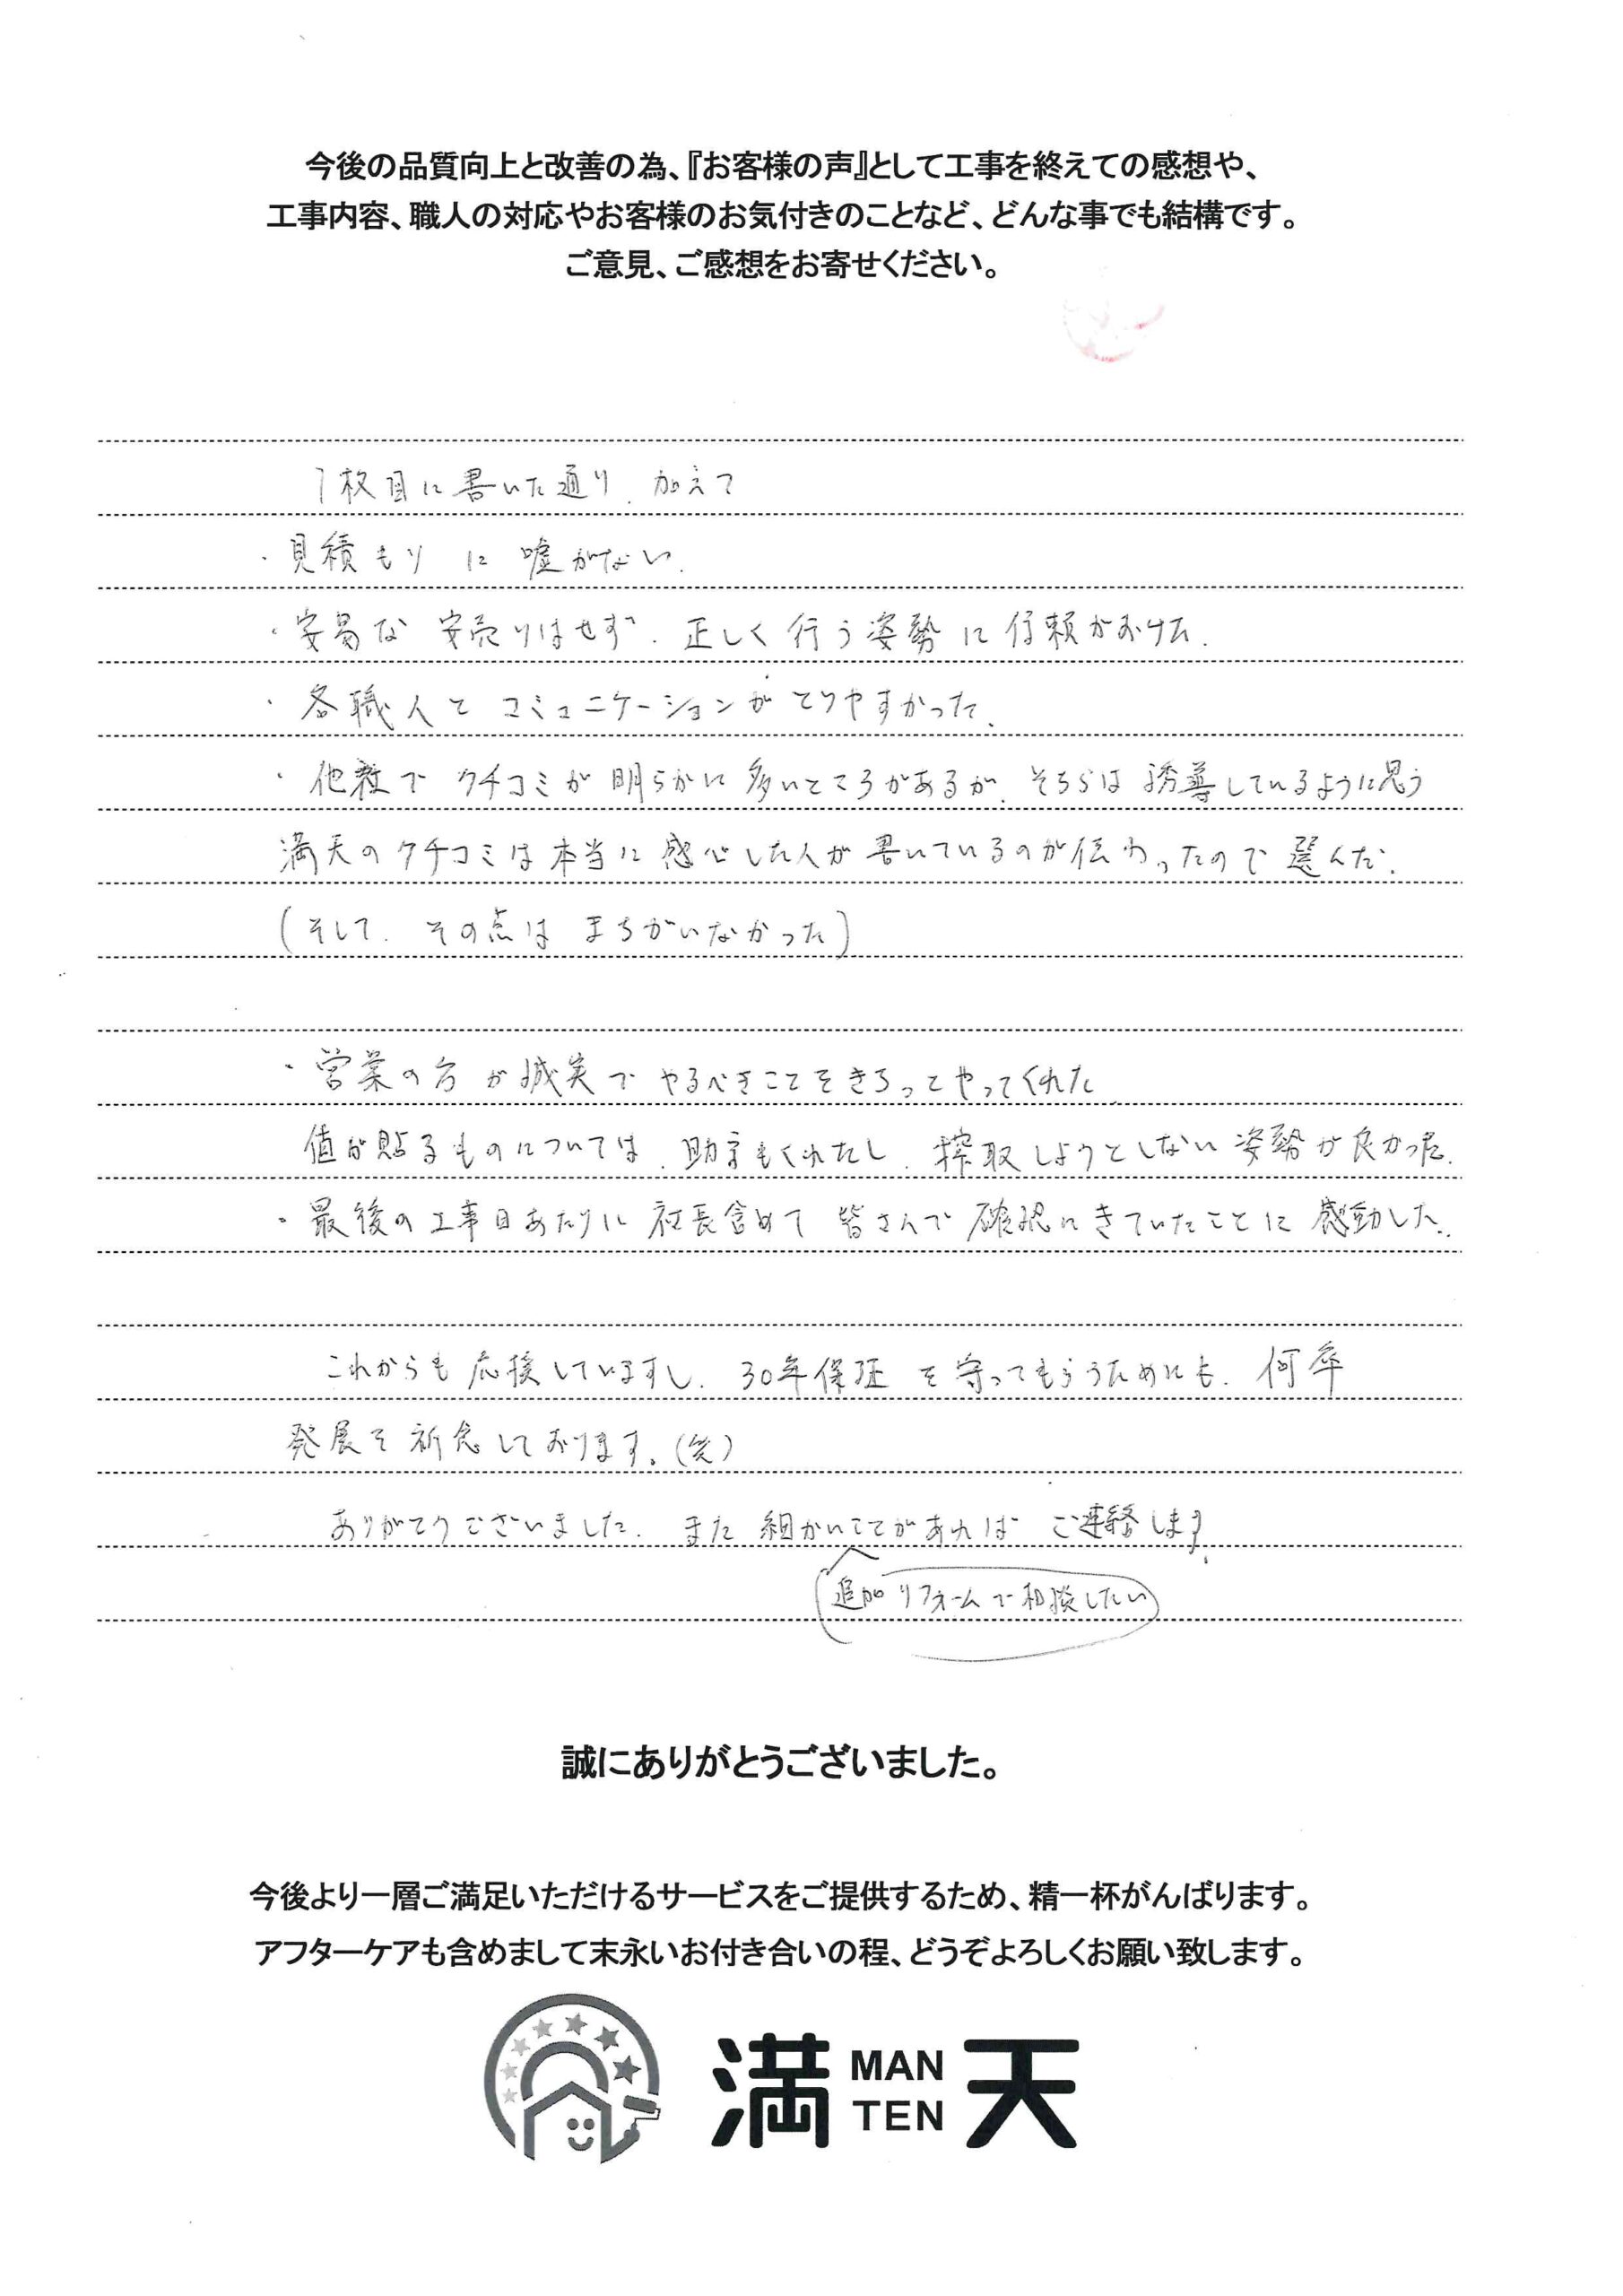 今後の品質向上と改善の為、『お客様の声』として工事を終えての感想や、
工事内容、職人の対応やお客様のお気付きのことなど、どんな事でも結構です。
ご意見、ご感想をお寄せください。
1枚目に書いた通り、加えて
・見積もりに嘘がない。
・安易な安売りはせず、正しく行う姿勢に信頼がおけた。
・各職人とコミュニケーションがとりやすかった。
・他社でクチコミが明らかに多いところがあるが、そちらは誘導しているように思う
満天のクチコミは本当に感心した人が書いているのが伝わったので選んだ。
(そして、その点はまちがいなかった)
・営業の方が誠実でやるべきことをきちっとやってくれた
値が貼るものについては、助言もくれたし、搾取しようとしない姿勢が良かった。
・最後の工事日あたりに社長含めて皆さんで確認にきていたことに感動した。
これからも応援していますし、30年保証を守ってもらうためにも、何卒
発展を祈念しております。(笑)
ありがとうございました。また細かいことがあればご連絡します。
追加リフォームで相談したい
誠にありがとうございました。
今後より一層ご満足いただけるサービスをご提供するため、精一杯がんばります。
アフターケアも含めまして末永いお付き合いの程、どうぞよろしくお願い致します。
満 MAN TEN 天